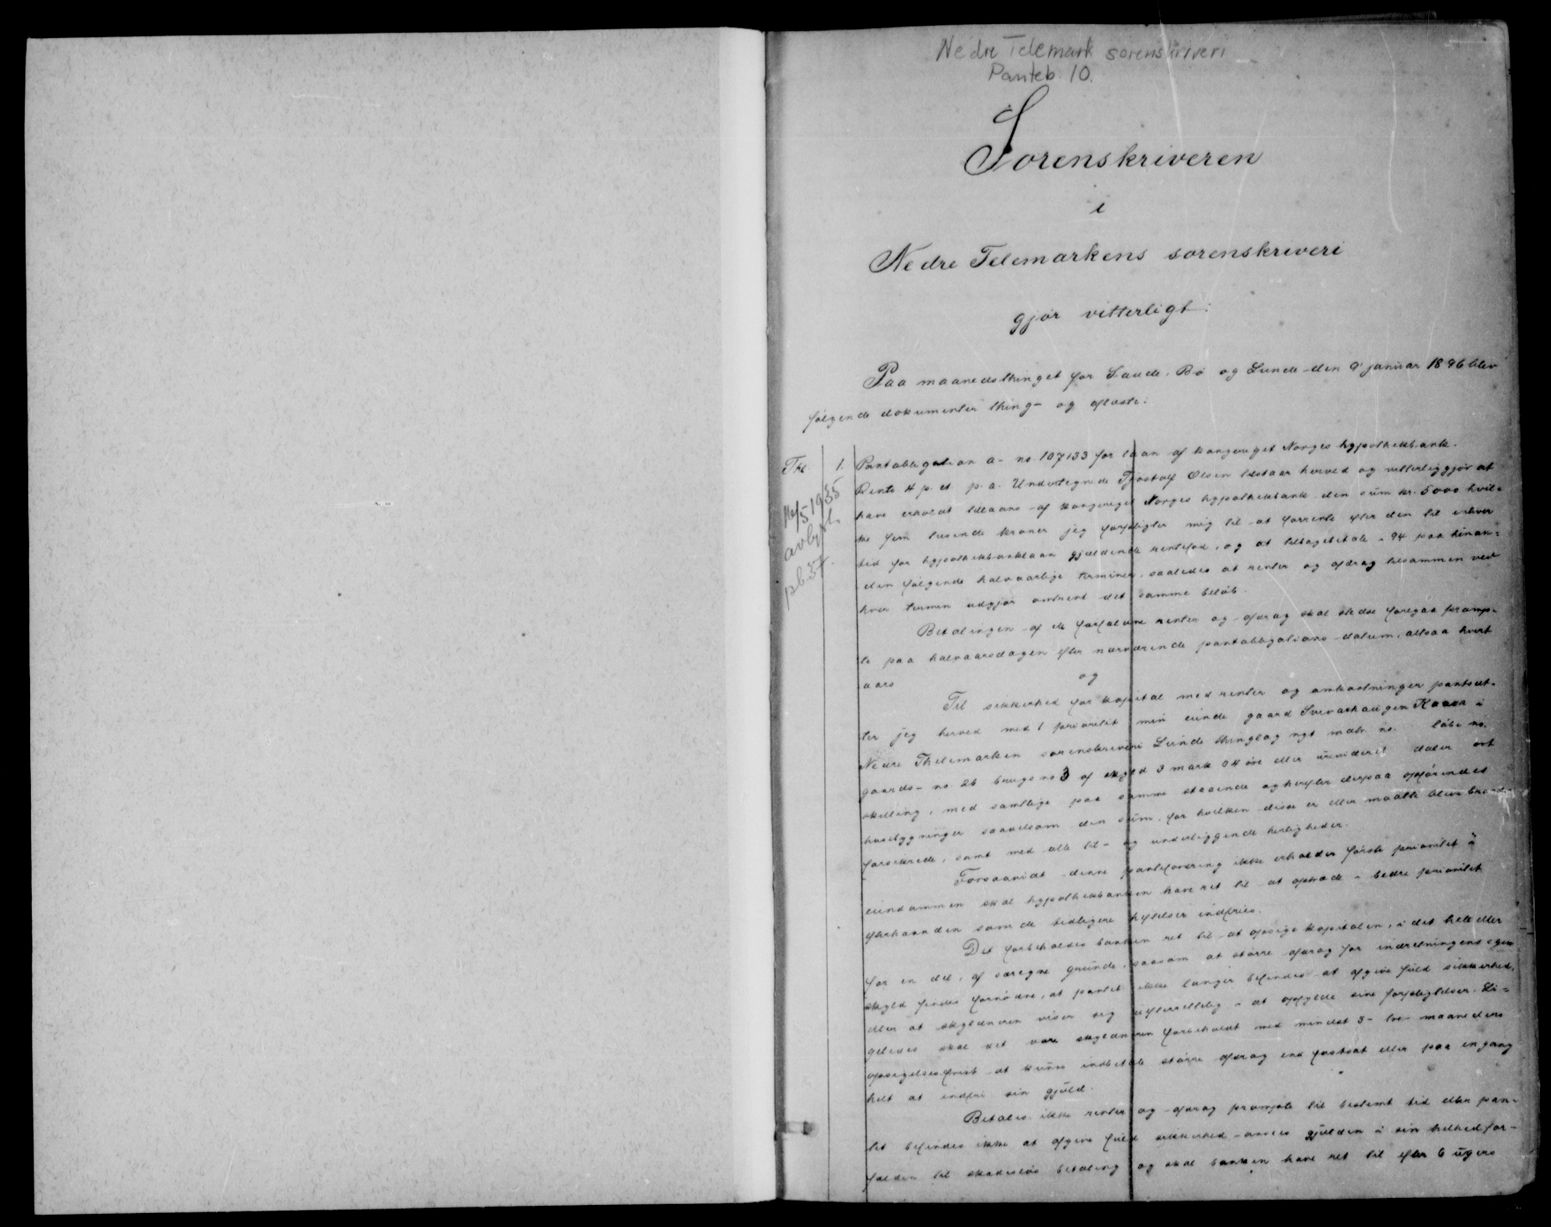 Nedre Telemark sorenskriveri
Panteb. 10.
Sorenskriveren
i
Nedre Telemarkens sorenskriveri
gjør vitterligt:
Paa maanedsthinget for Saude, Bø og Lunde den 9 januar 1896 blev
følgende dokumenter thing- og oplæste:
1. Pantobligation a- no 107133 for laan af kongeriget Norges hypothekbank.
Rente 4 p. ct. p. a. Undertegnede Tjostolf Olsen tilstaar herved og vitterliggjør at
have erholdt tillaans af kongeriget Norges hypothekbank den sum kr. 5000 hvil-
ke fem tusende kroner jeg forpligter mig til at forrente efter den til enhver
tid for hypothekbanklaan gjældende rentefod, og at tilbagebetale i 94 paa hinan-
den følgende halvaarlige terminer, saaledes at renter og afdrag tilsammen ved
hver termin udgjør omtrent det samme beløb.
14/5 1935
avlyst.
pb 37.
Betalingen af de forfaldne renter og afdrag skal stedse foregaa promp-
te paa halvaarsdagen efter nærværende pantobligations datum, altsaa hvert
aars og
Til sikkerhed for kapital med renter og omkostninger pantsæt-
ter jeg herved med 1 prioritet min eiende gaard i
Nedre Thelemarken sorenskriveri Lunde thinglag nyt matr. no. løbe no.
gaards- no 26 brugs no 3 af skyld 3 mark 94 øre eller urevideret daler ort
skilling, med samtlige paa samme staaende og herefter derpaa opførendes
husebygninger saavelsom den sum, for hvilken disse er eller maatte blive brand-
forsikrede, samt med alle til- og underliggende herligheder.
Forsaavidt denne pantefordring ikke erholder første prioritet i
eiendommen skal hypothekbanken have ret til at oprykke i bedre prioritet
efterhaanden som de tidligere heftelser indfries.
Det forbeholdes banken ret til at opsige kapitalen, i det hele eller
for en del, af særegne grunde, saasom at større afdrag for indretningens egen
skyld findes fornødne, at pantet ikke længer befindes at afgive fuld sikkerhed,
eller at skyldneren viser sig uefterrettelig i at opfylde sine forpligtelser. Li-
geledes skal det være skyldneren forbeholdt med mindst 3- tre maaneders
opsigelsesfrist at kunne indbetale større afdrag end fastsat eller paa engang
helt at indfri sin gjæld.
Betales ikke renter og afdrag prompte til bestemt tid eller pan-
tet befindes ikke at afgive fuld sikkerhed ansees gjælden i sin helhed for-
falden til skadesløs betaling og skal banken have ret til efter 6 ugers